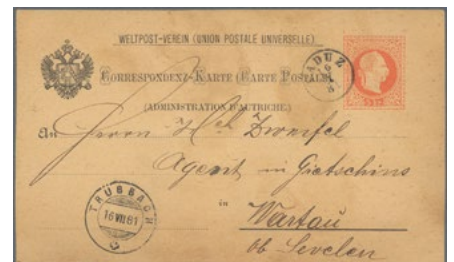 WELTPOST-VEREIN (UNION POSTALE UNIVERSELLE)
CORRESPONDENZ-KARTE (CARTE POSTALE)
ADUZ
(ADMINISTRATION D'AUTRICHE.)
An Herrn Zweifel
Agent in Gretschins
in
Wartau
ob Sevelen
TRÜBBACH
16 VII 81